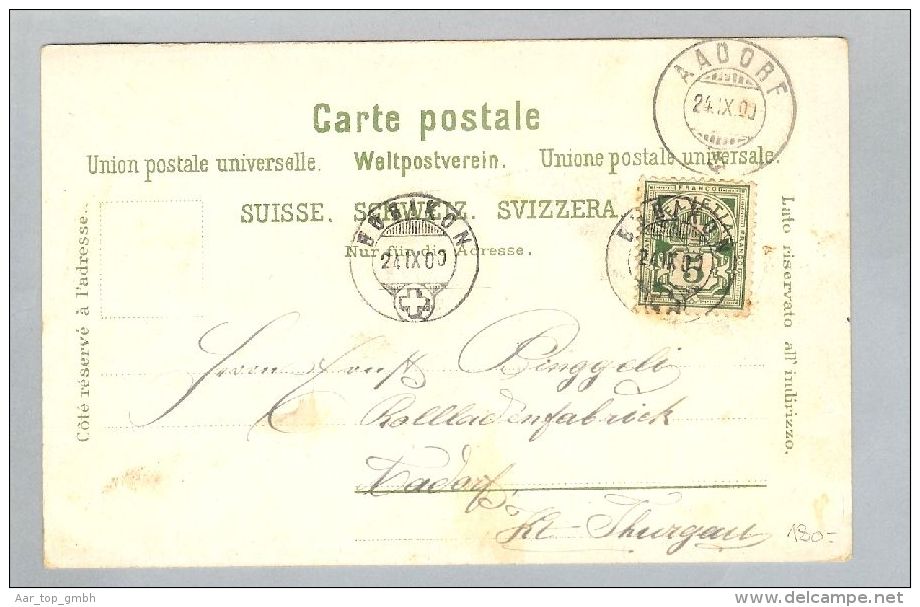 AADORF
24.IX.00
Carte postale
Union postale universelle. Weltpostverein. Unione postale universale.
SUISSE. SCHWEIZ. SVIZZERA.
Nur für die Adresse.
Côté réservé à l'adresse.
Lato riservato all' indirizzo.
BUBIKON
24 IX 00
FRANCO
HELVETIA
5
BUBIKON
24 IX 00
Herrn Ernst Binggeli
Rollladenfabrick
Aadorf
Kt. Thurgau
180-
Aar_top_gmbh
www.delcampe.net